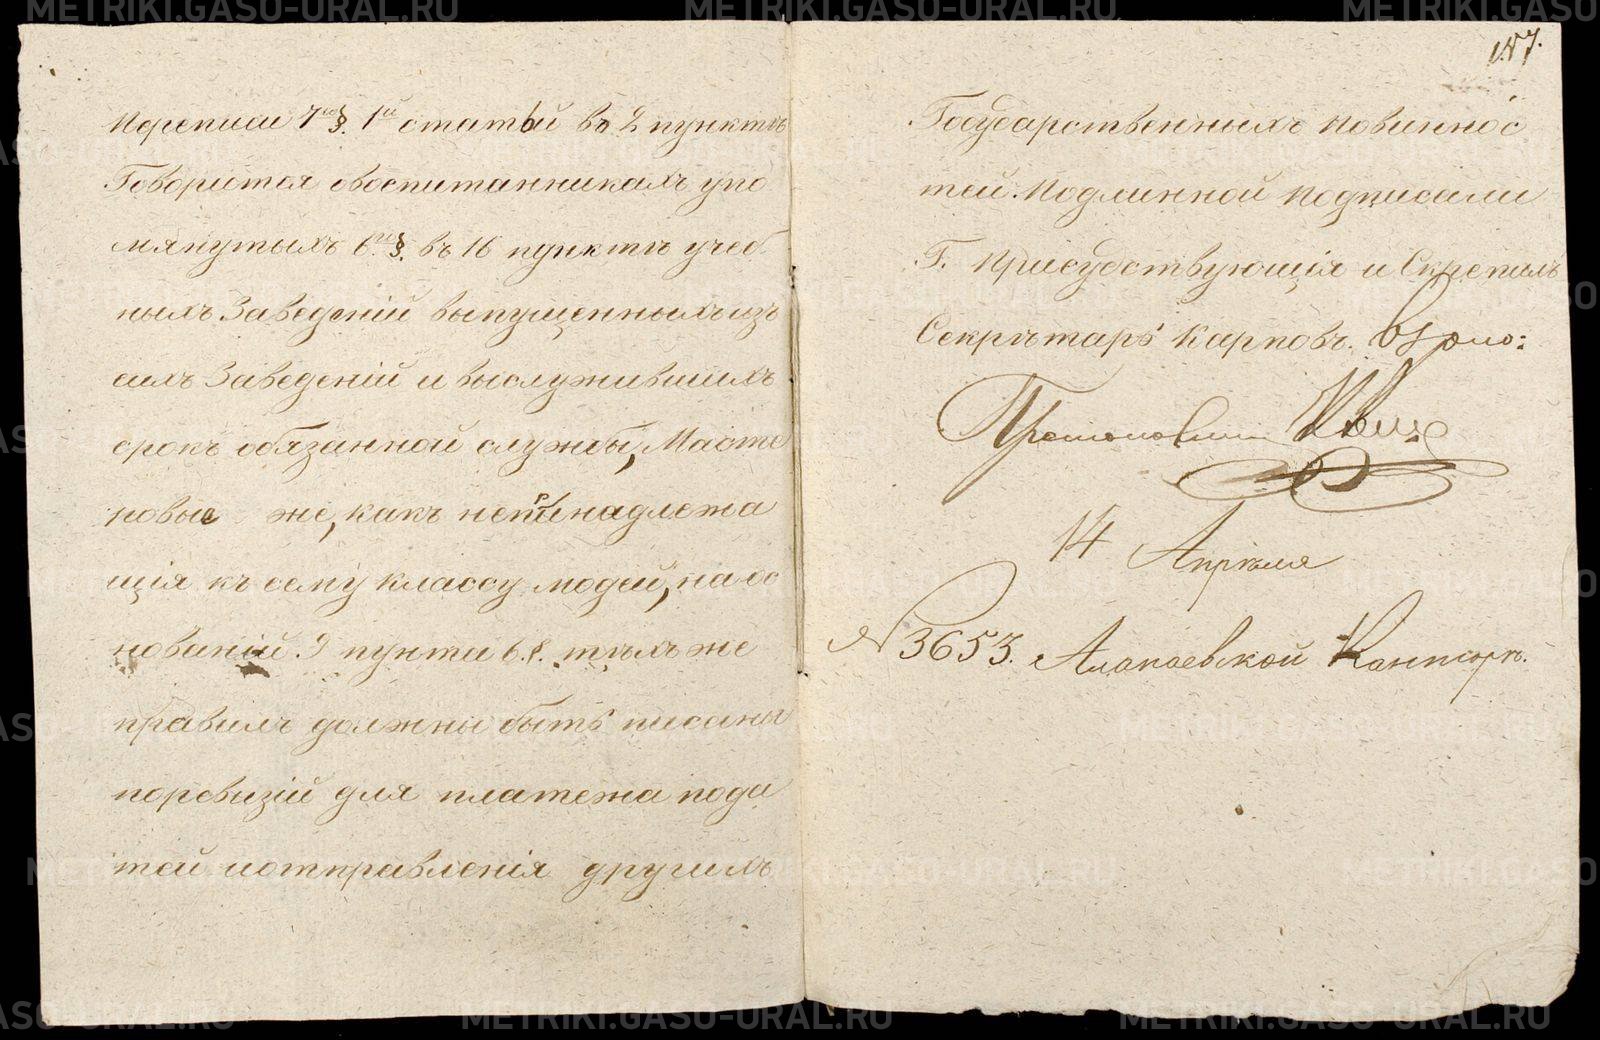 переписи 7го §. 1й статьи въ 2 пунктѣ
Говорится овоспитанникахъ упо
мянутыхъ 6го §. въ 16 пунктѣ учеб
ныхъ Заведеній выпущенныхъ изъ
сихъ Заведеній и выслужившихъ
срокъ обязанной службы, Масте
ровые же, какъ непринадлежа
щія къ сему классу людей, на ос
нованій 9 пункта 6 §. тѣхъ же
правилъ должны быть писаны
поревизій для платежа пода
тей иотправленія другихъ
187.
Государственныхъ повиннос
тей. Подлинной подписали
Г. Присудствующія и Скрепилъ
Секрѣтарь Карповъ.
14 Апрѣля
№ 3653. Алапаевской Конторѣ.
METRIKI.GASO-URAL.RU